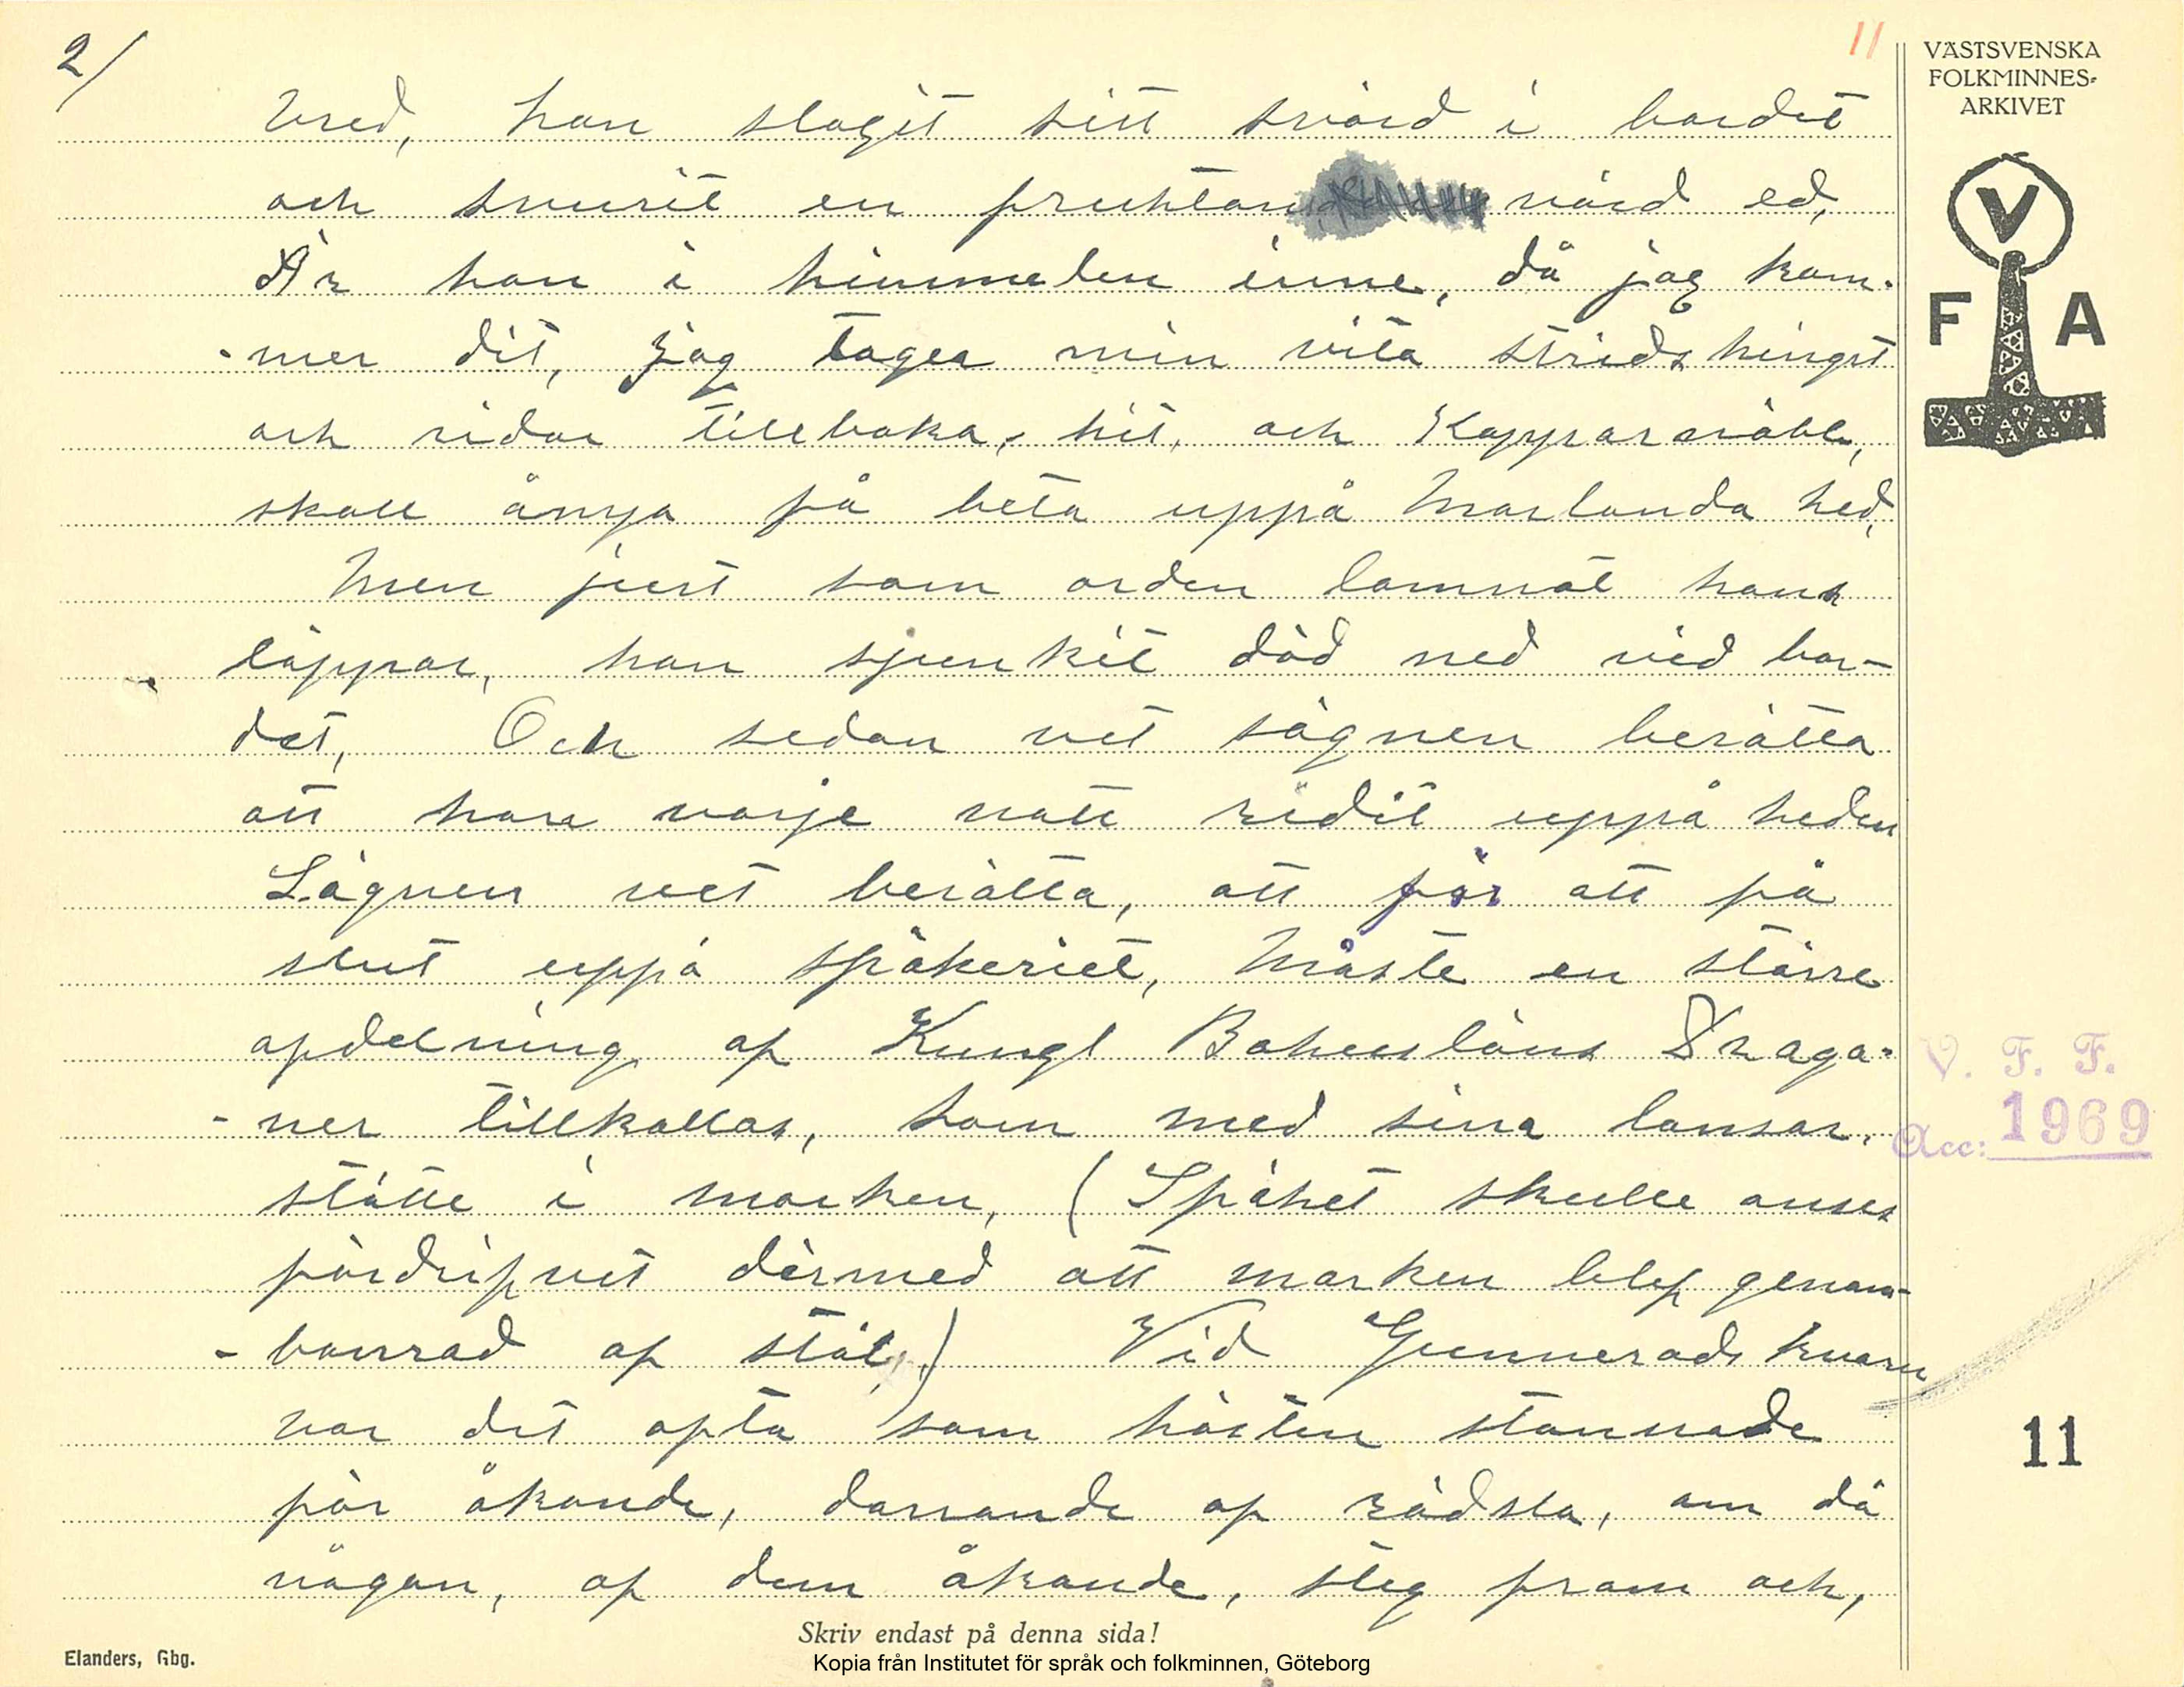 2/
11
VÄSTSVENSKA
FOLKMINNES-
ARKIVET
V
F A
Vred, han slagit sitt svärd i bordet
och svurit en fruktans värd ed,
Är han i himmelen inne, då jag kom-
-mer dit, jag tager min vita strids hingst
och ridar tillbaka, hit, och Kapparsröble,
skall ånya få beta uppå Marlanda hed,
Men just som orden lämnat hans
läppar, han sjunkit död ned vid bor-
det, Och sedan vet sägnen berätta
att han varje natt ridit uppå heden
Sägnen vet berätta, att för att få
slut uppå spökeriet, Måste en större
afdelning af Kungl Bohusläns Draga-
-ner tillkallas, som med sina lansar,
stötte i marken, (Spöket skulle anses
fördrifvet därmed att marken blef genom-
-borrad af stål,) Vid Gunnerads kvarn
var det ofta som hästen stannade
för åkande, darrande af rädsla, om då
någon, af dem åkande, steg fram och,
V. F. F.
Acc: 1969
11
Skriv endast på denna sida!
Elanders, Gbg.
Kopia från Institutet för språk och folkminnen, Göteborg